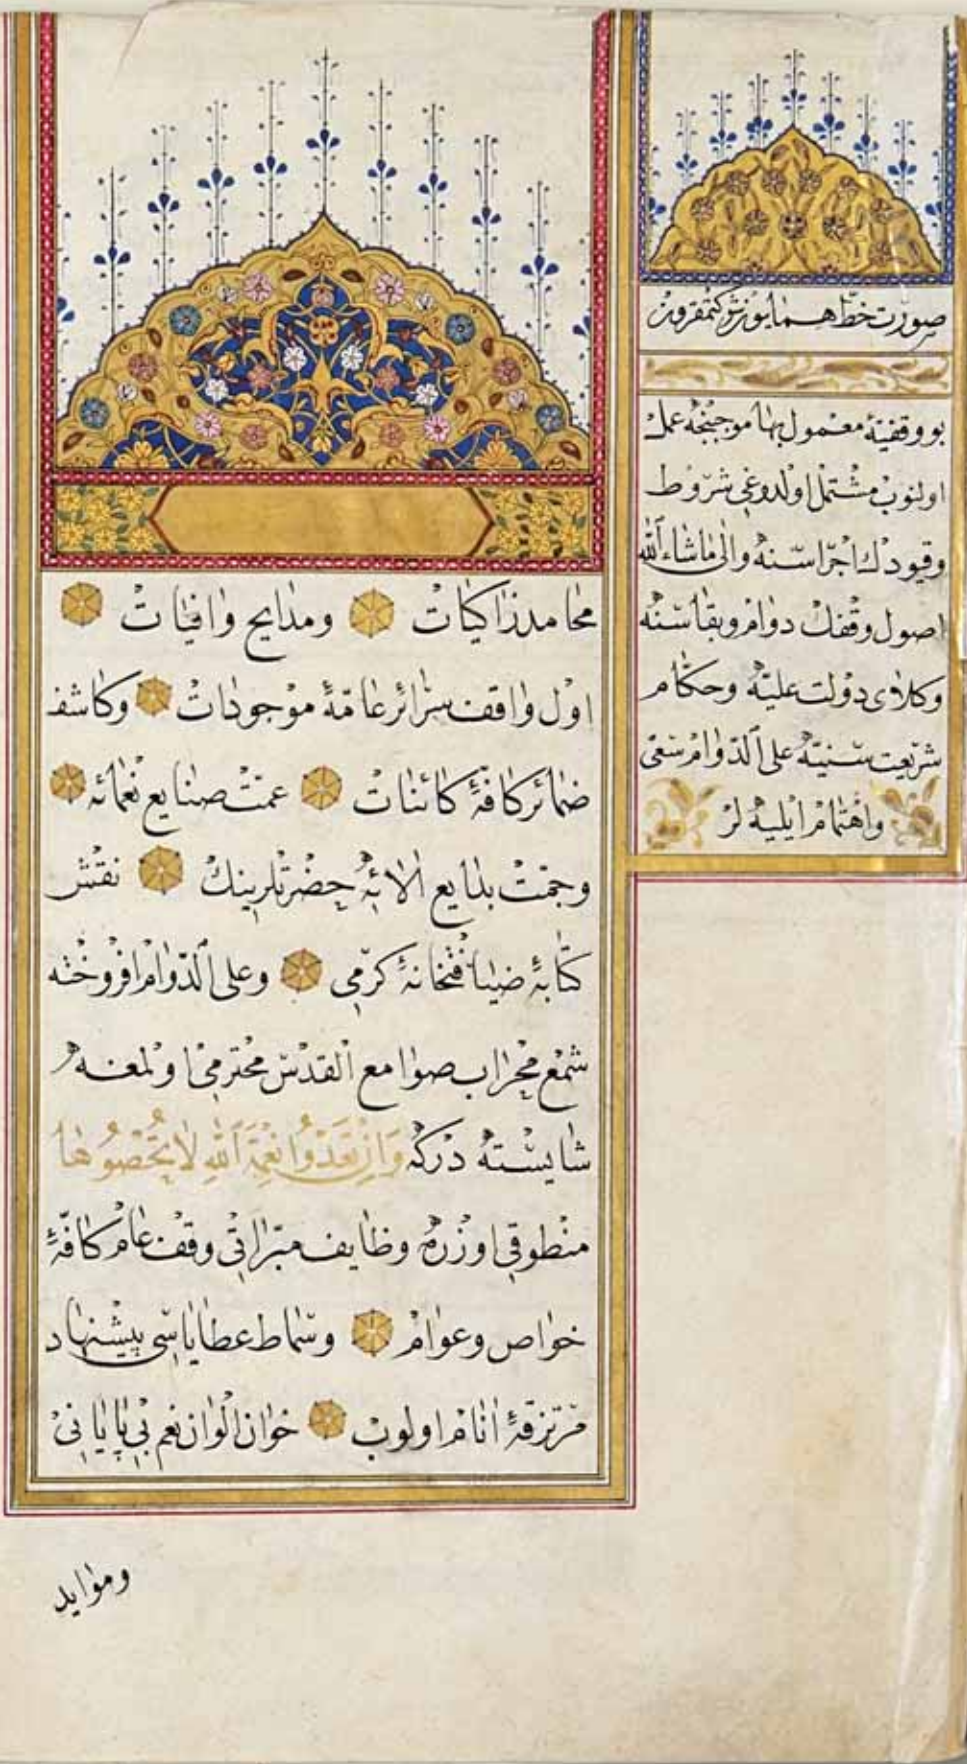 صورت خط همايون شوكتمقرون
بو وقفيۀ معمول بهاموجبنجه عمل
اولنوب مشتمل اولدوغی شروط
وقيودك اجراسنه والی ماشاء الله
اصول وقفك دوام وبقاسنه
وكلای دولت عليه وحكام
شريعت سنيه علی الدوام سعی
واهتمام ايليه لر
محامد زاكيات ومدايح وافيات
اول واقف سرائر عامۀ موجودات وكاشف
ضمائر كافۀ كائنات عمت صنايع نعمائه
وجمت بدايع الائه حضرتلرينك نقش
كتابۀ ضيافتخانۀ كرمی وعلی الدوام افروختۀ
شمع محراب صوامع القدس محترمی اولمغه
شايسته دركه وَاِنْ تَعُدُّوا نِعْمَةَ اللّٰهِ لَا تُحْصُوهَا
منطوقی اوزره وظايف مبراتی وقف عام كافۀ
خواص وعوام وسماط عطاياسی پيشنهاد
مرتزقۀ انام اولوب خوان الوان نعم بی پايانی
وموايد